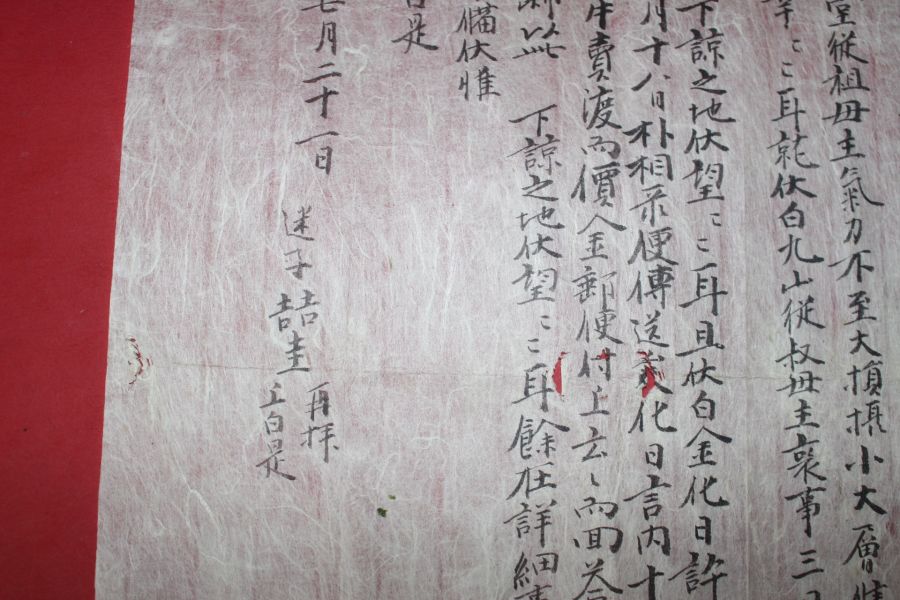 堂從祖母主氣力不至大損攝小大層
耳就伏白九山從叔母主喪事三
下諒之地伏望〻〻耳且伏白金化日許
月十八日朴相 便傳送 化日言內十
牛賣渡而價金郵便付上云〻而回
以 下諒之地伏望〻〻耳餘在詳細
備伏惟
是
七月二十一日
迷子喆圭 再拜
上白是